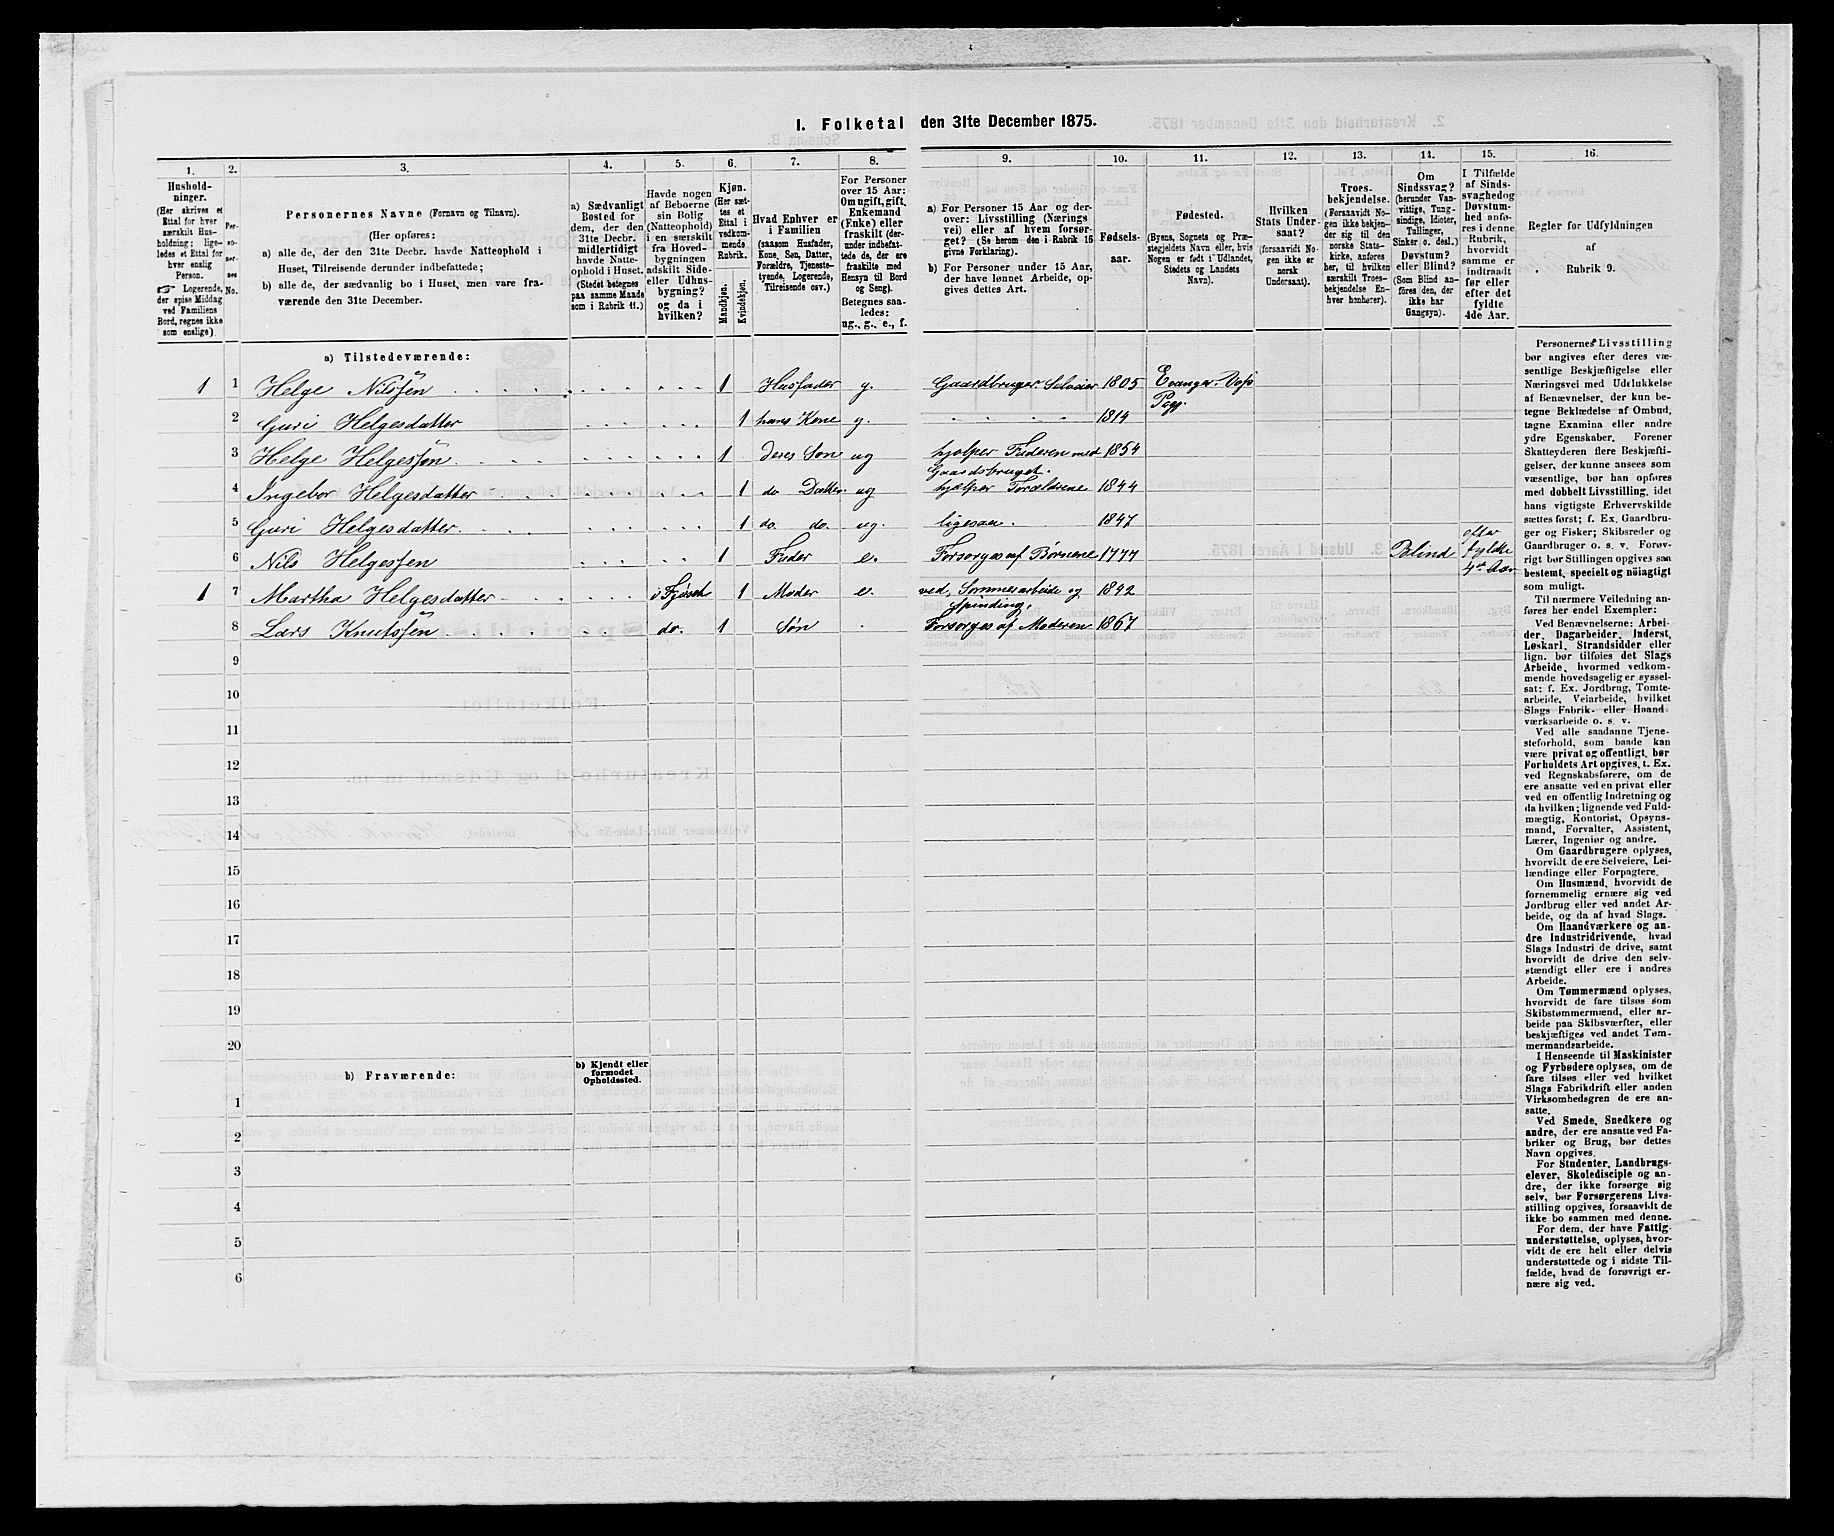 I. Folketal den 31te December 1875.
1. 2. 3. 4. 5. 6. 7. 8. 9. 10. 11. 12. 13. 14. 15. 16.
Hushold-
ninger.
(Her skrives et
Ettal for hver
særskilt Hus-
holdning; lige-
ledes et Ettal for
hver enslig
Person.
☞ Logerende,
der spise Middag
ved Familiens
Bord, regnes ikke
som enslige).
Per-
so-
ner-
nes
No.
Personernes Navne (Fornavn og Tilnavn).
(Her opføres:
a) alle de, der den 31te Decbr. havde Natteophold i
Huset, Tilreisende derunder indbefattede;
b) alle de, der sædvanlig bo i Huset, men vare fra-
værende den 31te December.
a) Sædvanligt
Bosted for
dem, der den
31te Decbr.
midlertidigt
havde Natte-
ophold i Huset.
(Stedet betegnes
paa samme Maade
som i Rubrik 11.)
Havde nogen
af Beboerne
sin Bolig
(Natteophold)
i en særskilt
fra Hoved-
bygningen
adskilt Side-
eller Udhus-
bygning?
og da i
hvilken?
Kjøn.
(Her sæt-
tes et
Ettal i
vedkom-
mende
Rubrik.
Mandkjøn.
Kvindekjøn.
Hvad Enhver er
i Familien
(saasom Husfader,
Kone, Søn, Datter,
Forældre, Tjeneste-
tyende, Logerende,
Tilreisende osv.)
For Personer
over 15 Aar:
Om ugift, gift,
Enkemand
(Enke) eller
fraskilt (der-
under indbefat-
tede de, der ere
fraskilte med
Hensyn til Bord
og Seng).
Betegnes saa-
ledes:
ug., g., e., f.
a) For Personer 15 Aar og der-
over: Livsstilling (Nærings
vei) eller af hvem forsør-
get? (Se herom den i Rubrik 16
givne Forklaring).
b) For Personer under 15 Aar,
der have lønnet Arbeide, op-
gives dettes Art.
Fødsels-
aar.
Fødested.
(Byens, Sognets og Præ-
stegjeldets Navn eller, hvis
Nogen er født i Udlandet,
Stedets og Landets
Navn).
Hvilken
Stats Under-
saat?
(forsaavidt No-
gen ikke er
norsk
Undersaat).
Troes-
bekjendelse.
(Forsaavidt No-
gen ikke bekjen-
der sig til den
norske Stats-
kirke, anføres
her, til hvilken
særskilt Troes-
bekjendelse En-
hver henhører).
Om
Sindssvag?
(herunder Van-
vittige, Tung-
sindige, Idioter,
Tullinger,
Sinker o. desl.)
Døvstum?
eller Blind?
(Som Blind an-
føres den, der
ikke har
Gangsyn).
I Tilfælde
af Sinds-
svaghed og
Døvstum-
hed anfø-
res i denne
Rubrik,
hvorvidt
samme er
indtraadt
før eller
efter det
fyldte
4de Aar.
Regler for Udfyldningen
af
Rubrik 9.
a) Tilstedeværende:
1 1 Helge Nilssen 1 Husfader g. Gaardbruger Selveier 1805 Evanger Voss
Pgj.
2 Guri Helgesdatter 1 hans Kone g. 1814
3 Helge Helgessøn 1 deres Søn ug hjelper Faderen med 1854
Gaardsbruget.
4 Ingebor Helgesdatter 1 do Datter ug hjelper Forældrene 1844
5 Guri Helgesdatter 1 do do. ug. ligesaa. 1847
6 Nils Helgessen 1 Fader e. Forsørges af Børnene 1777 Blind efter
fyldte
4de Aar
1 7 Martha Helgesdatter i Fjøset 1 Moder e. ved Sommerarbeide og 1842
Spinding.
8 Lars Knutssen do. 1 Søn Forsørges af Moderen 1867
9
10
11
12
13
14
15
16
17
18
19
20
b) Fraværende:
b) Kjendt eller
formodet
Opholdssted.
1
2
3
4
5
6
Personernes Livsstilling
bør angives efter deres væ-
sentlige Beskjæftigelse eller
Næringsvei med Udelukkelse
af Benævnelser, der kun be-
tegne Beklædelse af Ombud,
tagne Examina eller andre
ydre Egenskaber. Forener
Skatteyderen flere Beskjæfti-
gelser, der kunne ansees som
væsentlige, bør han opføres
med dobbelt Livsstilling, idet
hans vigtigste Erhvervskilde
sættes først; f. Ex. Gaardbru-
ger og Fisker; Skibsreder og
Gaardbruger o. s. v. Forøv-
rigt bør Stillingen opgives saa
bestemt, specielt og nøiagtigt
som muligt.
Til nærmere Veiledning an-
føres her endel Exempler:
Ved Benævnelserne: Arbei-
der, Dagarbeider, Inderst,
Løskarl, Strandsidder eller
lign. bør tilføies det Slags
Arbeide, hvormed vedkom-
mende hovedsagelig er syssel-
sat; f. Ex. Jordbrug, Tomte-
arbeide, Veiarbeide, hvilket
Slags Fabrik- eller Haand-
værksarbeide o. s. v.
Ved alle saadanne Tjene-
steforhold, som baade kan
være privat og offentligt, bør
Forholdets Art opgives, t. Ex.
ved Regnskabsførere, om de
ere ansatte ved en privat eller
ved en offentlig Indretning og
da hvilken; lignende ved Fuld-
mægtig, Kontorist, Opsyns-
mand, Forvalter, Assistent,
Lærer, Ingeniør og andre.
Om Gaardbrugere oplyses,
hvorvidt de ere Selveiere, Lei-
lændinge eller Forpagtere.
Om Husmænd, hvorvidt de
fornemmelig ernære sig ved
Jordbrug eller ved andet Ar-
beide, og da af hvad Slags.
Om Haandværkere og an-
dre Industridrivende, hvad
Slags Industri de drive, samt
hvorvidt de drive den selv-
stændigt eller ere i andres
Arbeide.
Om Tømmermænd oplyses,
hvorvidt de fare tilsøs som
Skibstømmermænd, eller ar-
beide paa Skibsværfter, eller
beskjæftiges ved andet Tøm-
mermandsarbeide.
I Henseende til Maskinister
og Fyrbødere oplyses, om de
fare tilsøs eller ved hvilket
Slags Fabrikdrift eller anden
Virksomhedsgren de ere an-
satte.
Ved Smede, Snedkere og
andre, der ere ansatte ved Fa-
briker og Brug, bør dettes
Navn opgives.
For Studenter, Landbrugs-
elever, Skoledisciple og an-
dre, der ikke forsørge sig
selv, bør Forsørgerens Livs-
stilling opgives, forsaavidt de
ikke bo sammen med denne.
For dem, der have Fattig-
understøttelse, oplyses, hvor-
vidt de ere helt eller delvis
understøttede og i sidste Til-
fælde, hvad de forøvrigt er-
nære sig ved.